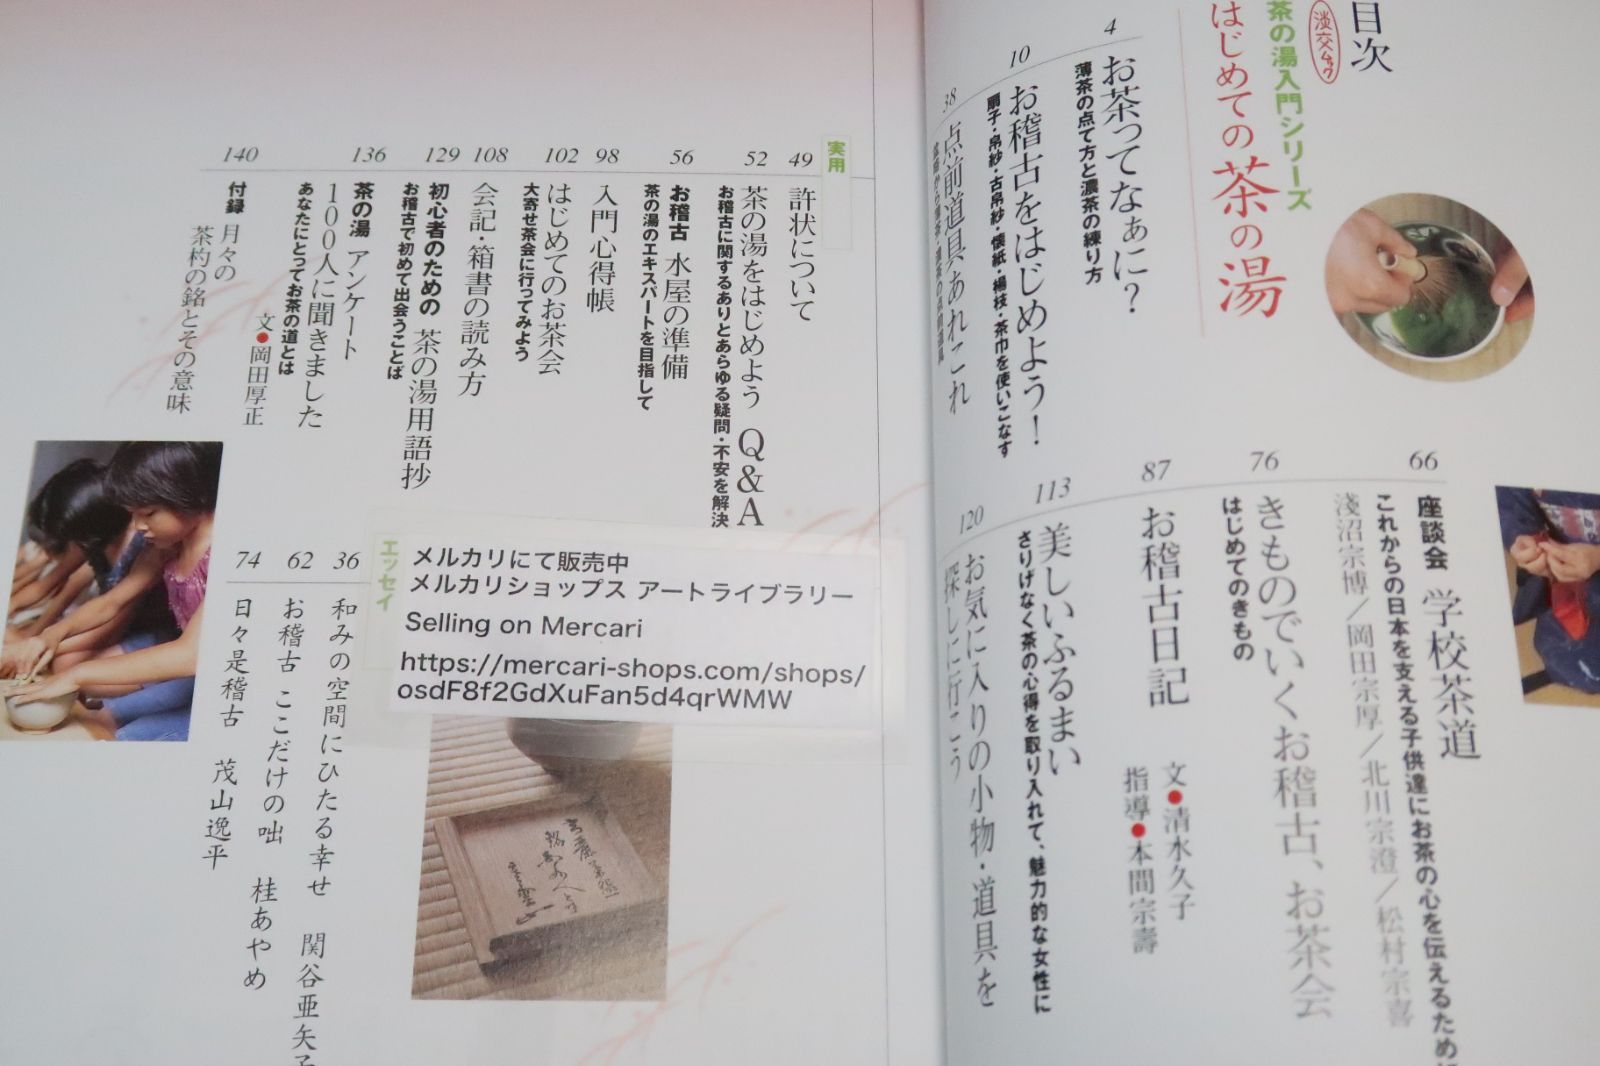 目次
淡交ムック
茶の湯入門シリーズ
はじめての茶の湯
4
お茶ってなぁに？
薄茶の点て方と濃茶の練り方
10
お稽古をはじめよう！
扇子・帛紗・古帛紗・懐紙・楊枝・茶巾を使いこなす
38
点前道具あれこれ
66
座談会 学校茶道
これからの日本を支える子供達にお茶の心を伝えるため
淺沼宗博／岡田宗厚／北川宗澄／松村宗喜
76
きものでいくお稽古、お茶会
はじめてのきもの
87
お稽古日記
文●清水久子
指導●本間宗壽
113
美しいふるまい
さりげなく茶の心得を取り入れて、魅力的な女性に
120
お気に入りの小物・道具を
探しに行こう
実用
49
許状について
52
茶の湯をはじめよう Q&A
お稽古に関するありとあらゆる疑問・不安を解決
56
お稽古 水屋の準備
茶の湯のエキスパートを目指して
98
入門心得帳
102
はじめてのお茶会
大寄せ茶会に行ってみよう
108
会記・箱書の読み方
129
初心者のための 茶の湯用語抄
お稽古で初めて出会うことば
136
茶の湯 アンケート
100人に聞きました
あなたにとってお茶の道とは
140
付録 月々の
茶杓の銘とその意味
文●岡田厚正
エッセイ
36
和みの空間にひたる幸せ 関谷亜矢子
62
お稽古 ここだけの咄 桂あやめ
74
日々是稽古 茂山逸平
メルカリにて販売中
メルカリショップス アートライブラリー
Selling on Mercari
https://mercari-shops.com/shops/
osdF8f2GdXuFan5d4qrWMW